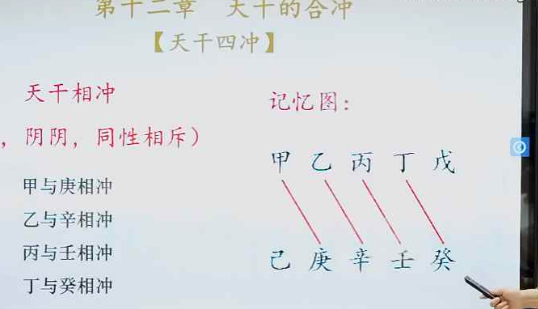 第十二章 天干的合冲
【天干四冲】
天干相冲
，阴阴，同性相斥）
甲与庚相冲
乙与辛相冲
丙与壬相冲
丁与癸相冲
记忆图：
甲 乙 丙 丁 戊
己 庚 辛 壬 癸